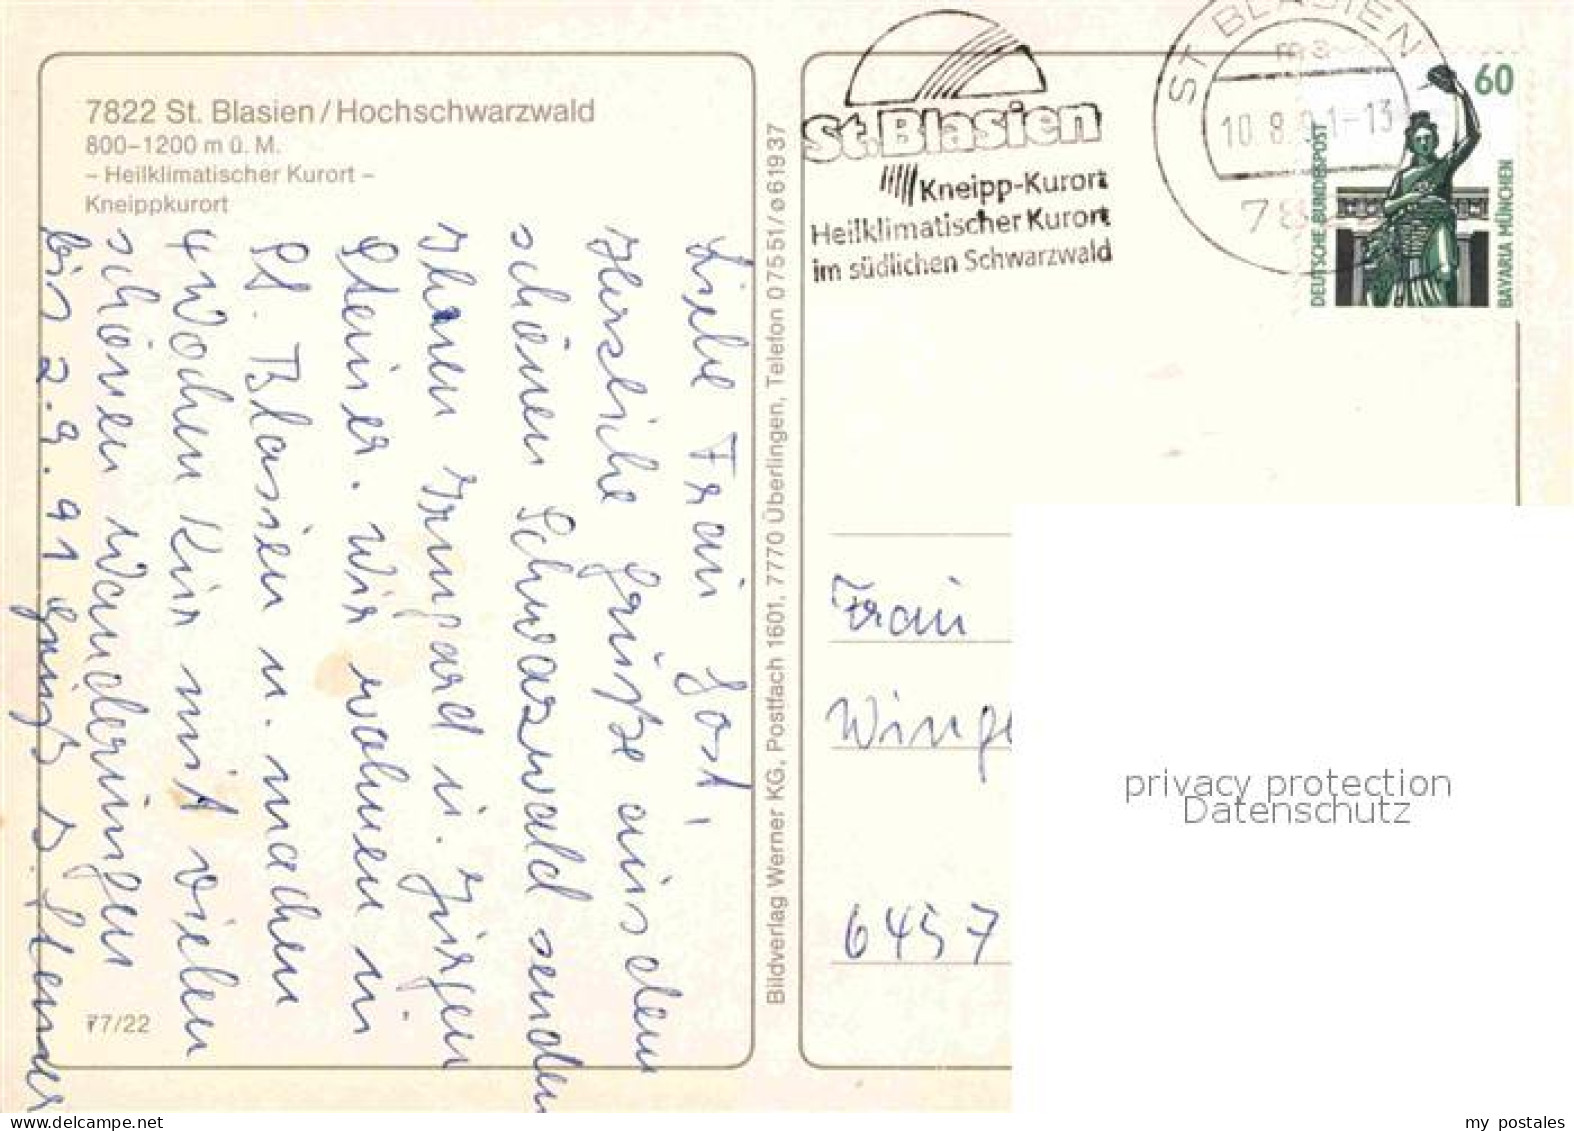 7822 St. Blasien/Hochschwarzwald
800–1200 m ü. M.
– Heilklimatischer Kurort –
Kneippkurort
Liebe Frau Jost,
Herzliche Grüße aus dem
schönen Schwarzwald senden
Ihnen Irmgard u. Jürgen
Steiner. Wir wohnen in
St. Blasien u. machen
4 Wochen Kur mit vielen
schönen Wanderungen
bis 2.9.91 Gruß
77/22
Bildverlag Werner KG, Postfach 1601, 7770 Überlingen, Telefon 07551/ø61937
St. Blasien
Kneipp-Kurort
Heilklimatischer Kurort
im südlichen Schwarzwald
ST BLASIEN
ma
10.8.91-13
78
60
DEUTSCHE BUNDESPOST
BAVARIA MÜNCHEN
Frau
Winge
6457
privacy protection
Datenschutz
www.delcampe.net
my postales